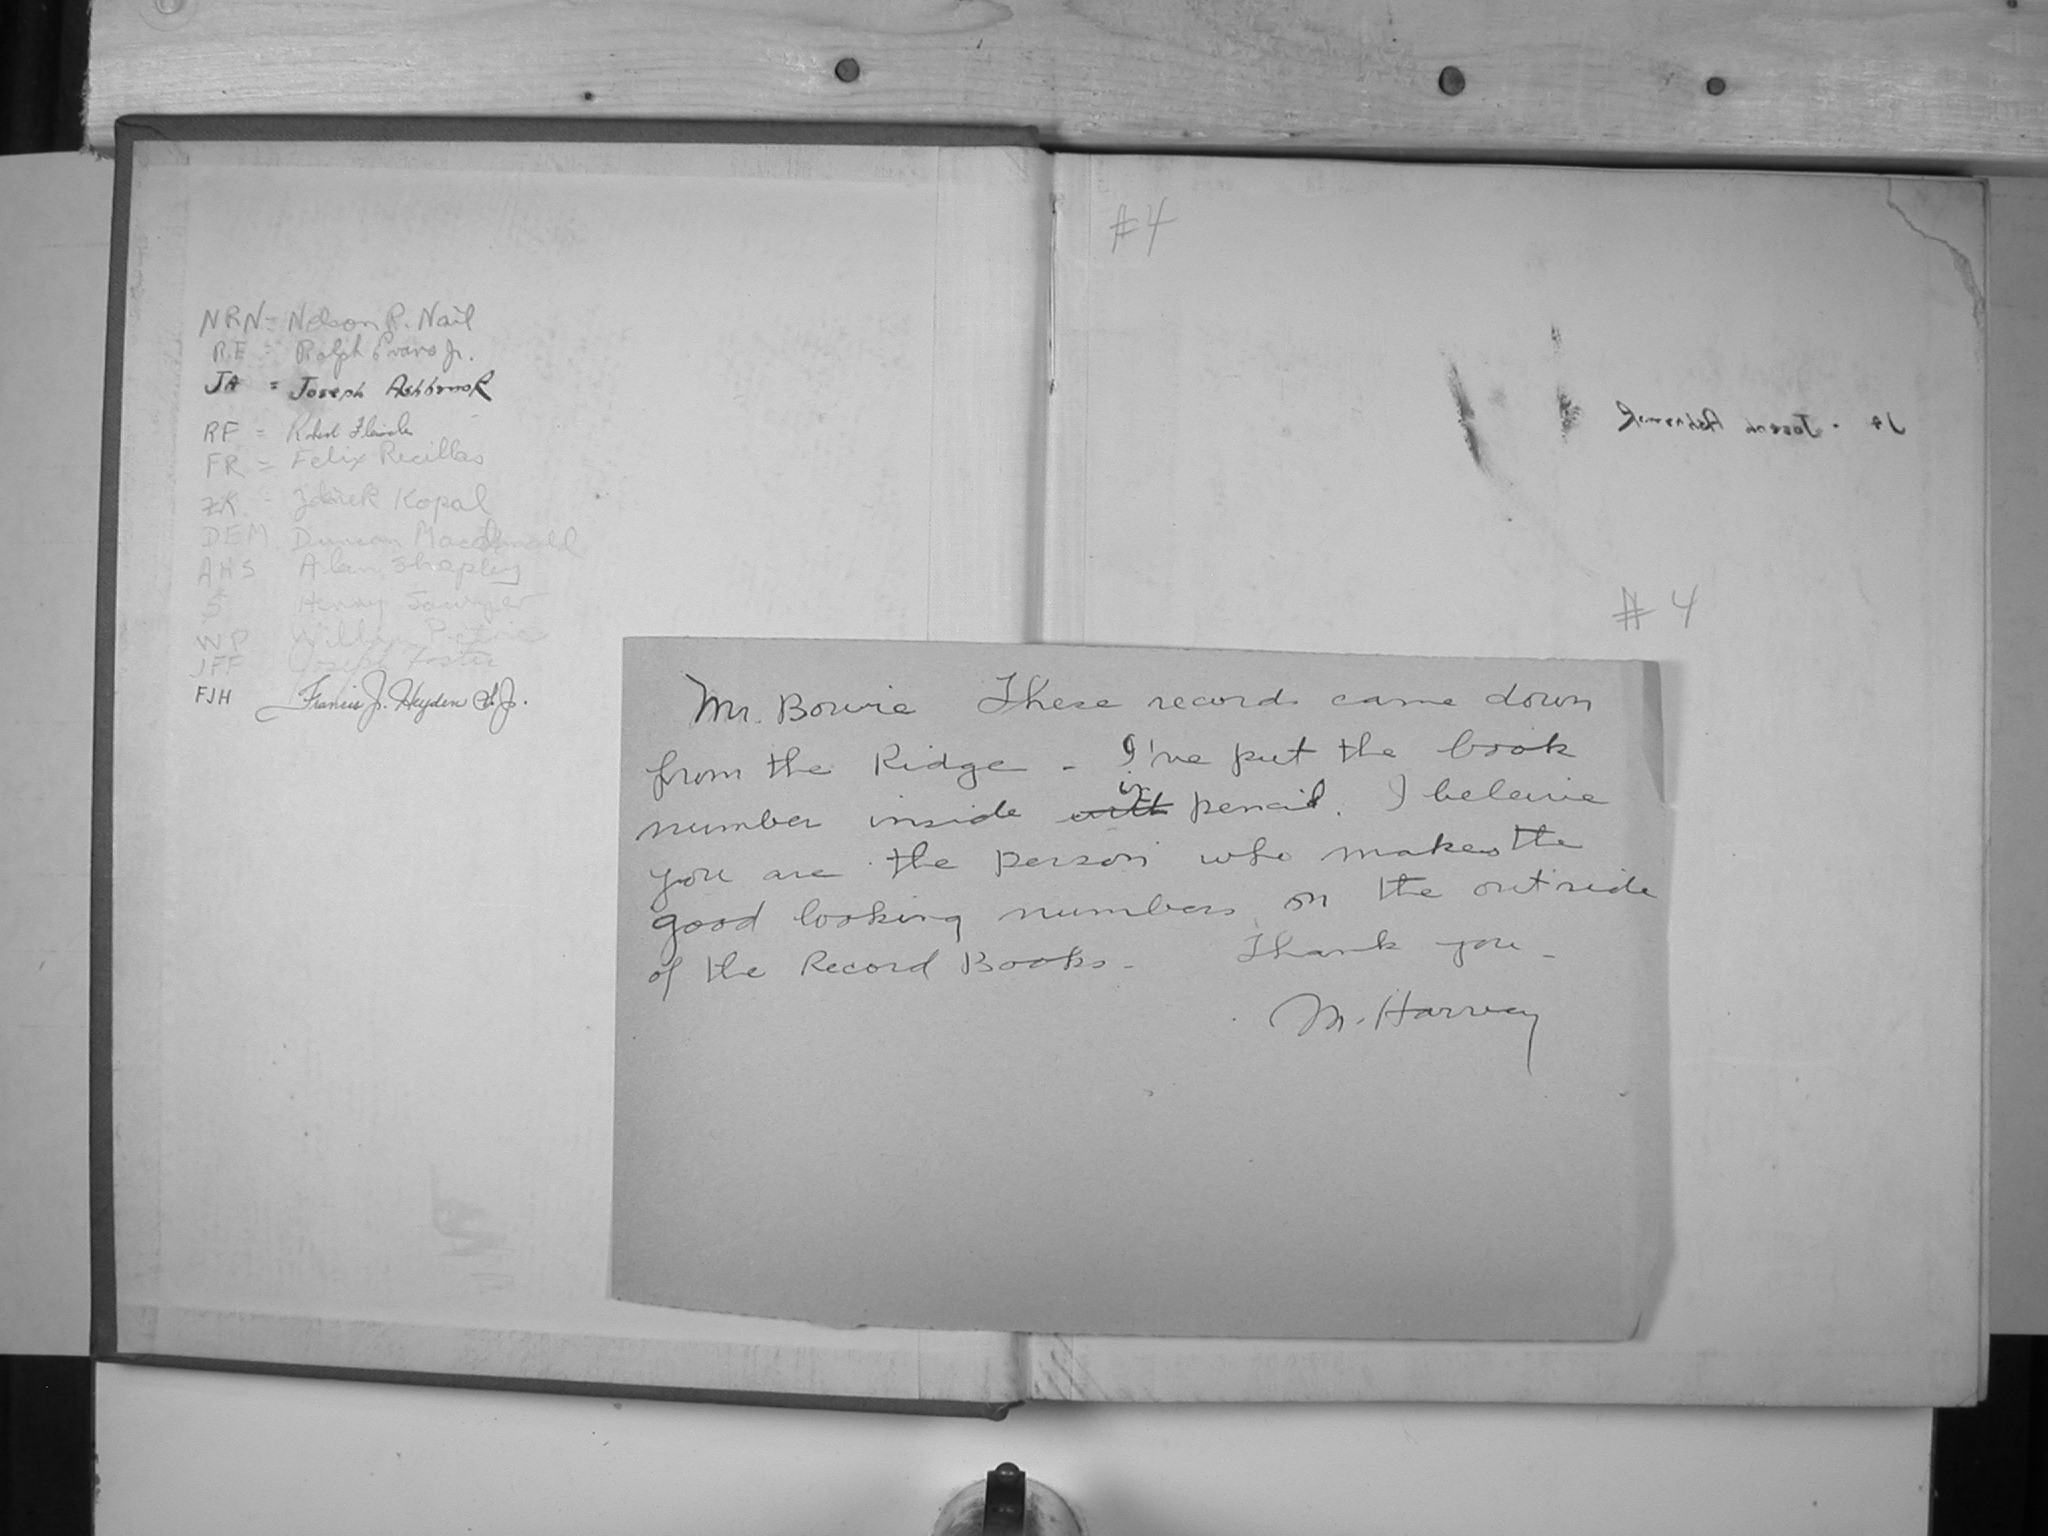 NRN = Nelson R. Nail
RE = Ralph Evans Jr.
JA = Joseph Ashbrook
RF = Robert
FR = Felix Recillas
ZK = Zdenek Kopal
DEM Duncan Macdonald
AHS Alan Shapley
S Henry Sawyer
WP William
JFF Joseph Foster
FJH Francis J. Heyden S.J.
#4
JA = Joseph Ashbrook
#4
Mr. Bowie These records came down
from the Ridge - I've put the book
number inside with in pencil. I beleive
you are the person who makes the
good looking numbers on the outside
of the Record Books - Thank you -
M. Harvey